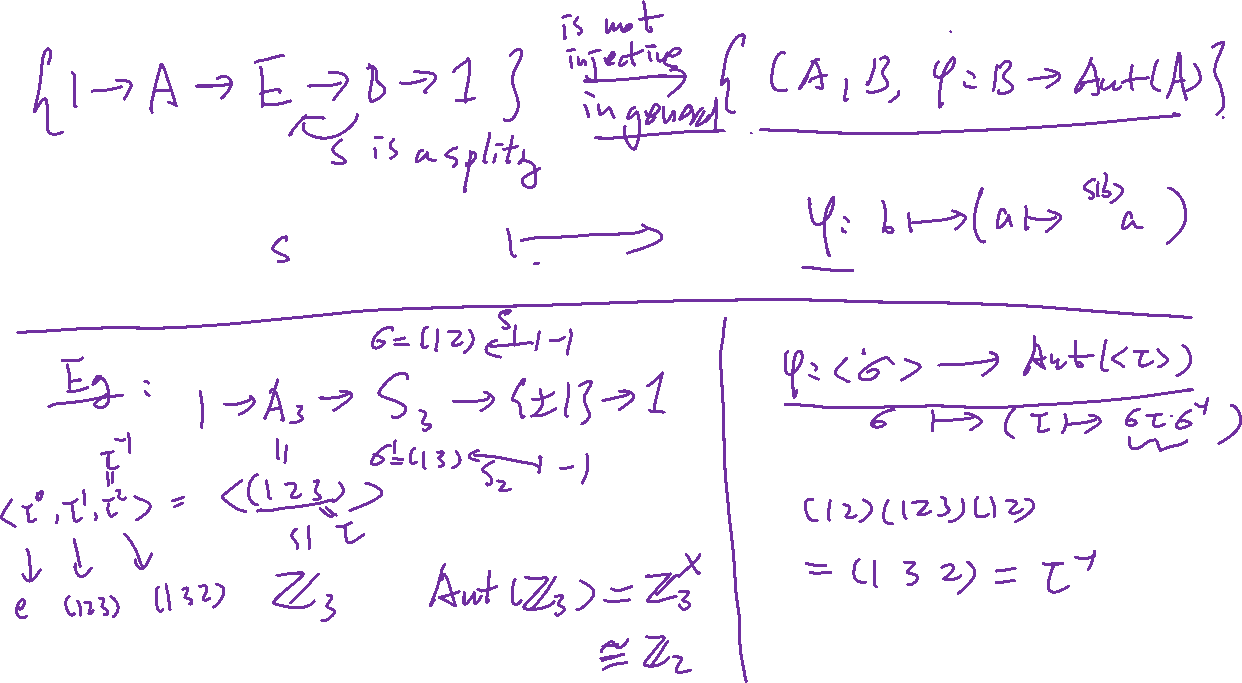 {1 → A → E → B → 1} is not injective in general → { (A, B, φ: B → Aut(A) }
s is a splitg
s ↦ φ: b ↦ (a ↦ ^{s(b)} a )
Eg:
σ = (12) ←s −1
1 → A₃ → S₃ → {±1} → 1
σ' = (13) ←s₂ −1
<τ⁰, τ¹, τ²> = <(1 2 3)>
τ⁻¹ = τ
e (123) (132)
ℤ₃
Aut(ℤ₃) = ℤ₃^×
≅ ℤ₂
φ: <σ> → Aut(<τ>)
σ ↦ (τ ↦ στ·σ⁻¹)
(12)(123)(12)
= (1 3 2) = τ⁻¹